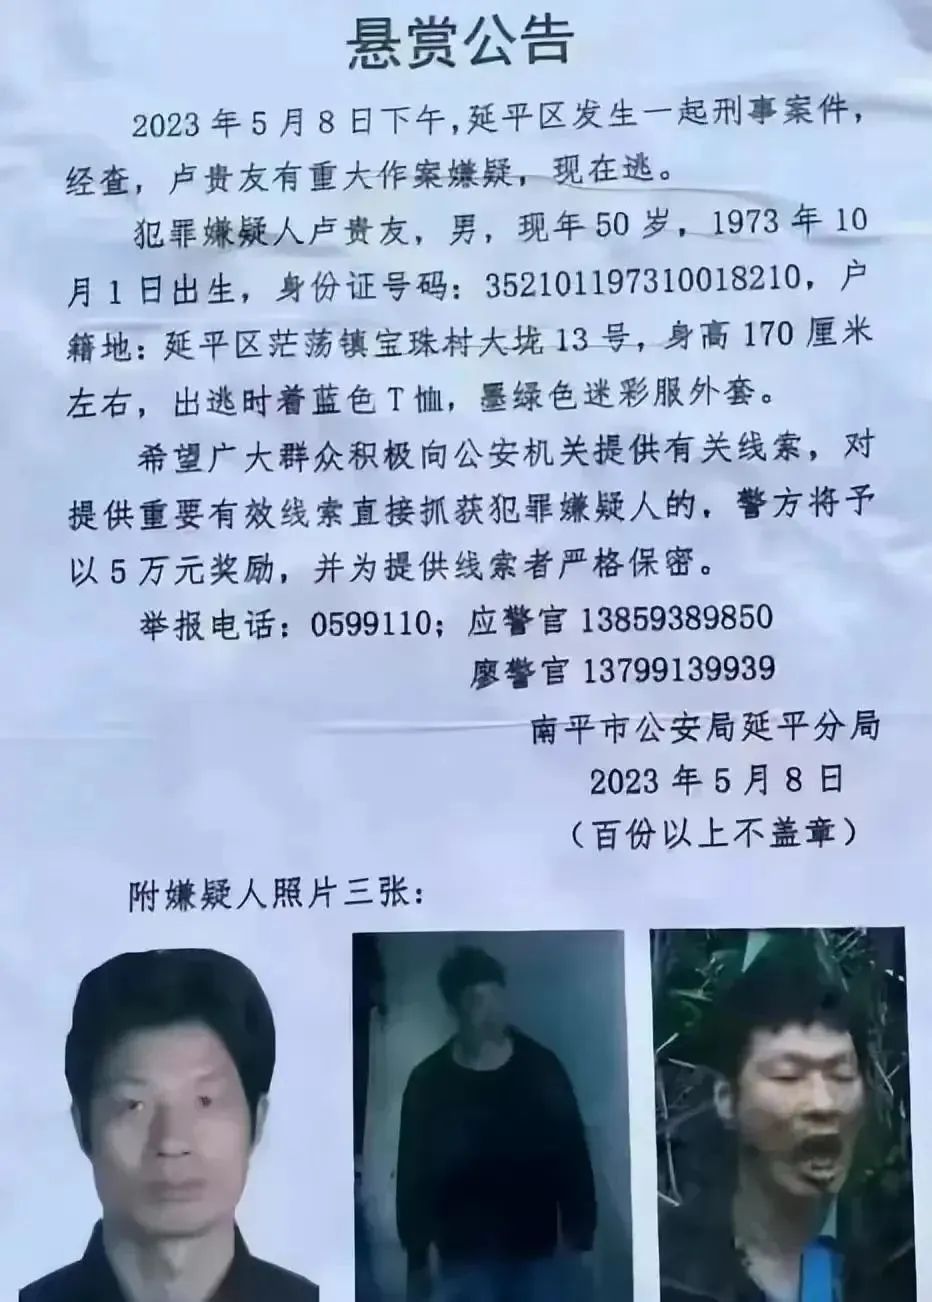 悬赏公告
2023年5月8日下午,延平区发生一起刑事案件,
经查，卢贵友有重大作案嫌疑，现在逃。
犯罪嫌疑人卢贵友，男，现年50岁，1973年10
月1日出生，身份证号码：352101197310018210，户
籍地：延平区茫荡镇宝珠村大垅13号，身高170厘米
左右，出逃时着蓝色T恤，墨绿色迷彩服外套。
希望广大群众积极向公安机关提供有关线索，对
提供重要有效线索直接抓获犯罪嫌疑人的，警方将予
以5万元奖励，并为提供线索者严格保密。
举报电话：0599110；应警官13859389850
廖警官13799139939
南平市公安局延平分局
2023年5月8日
（百份以上不盖章）
附嫌疑人照片三张：